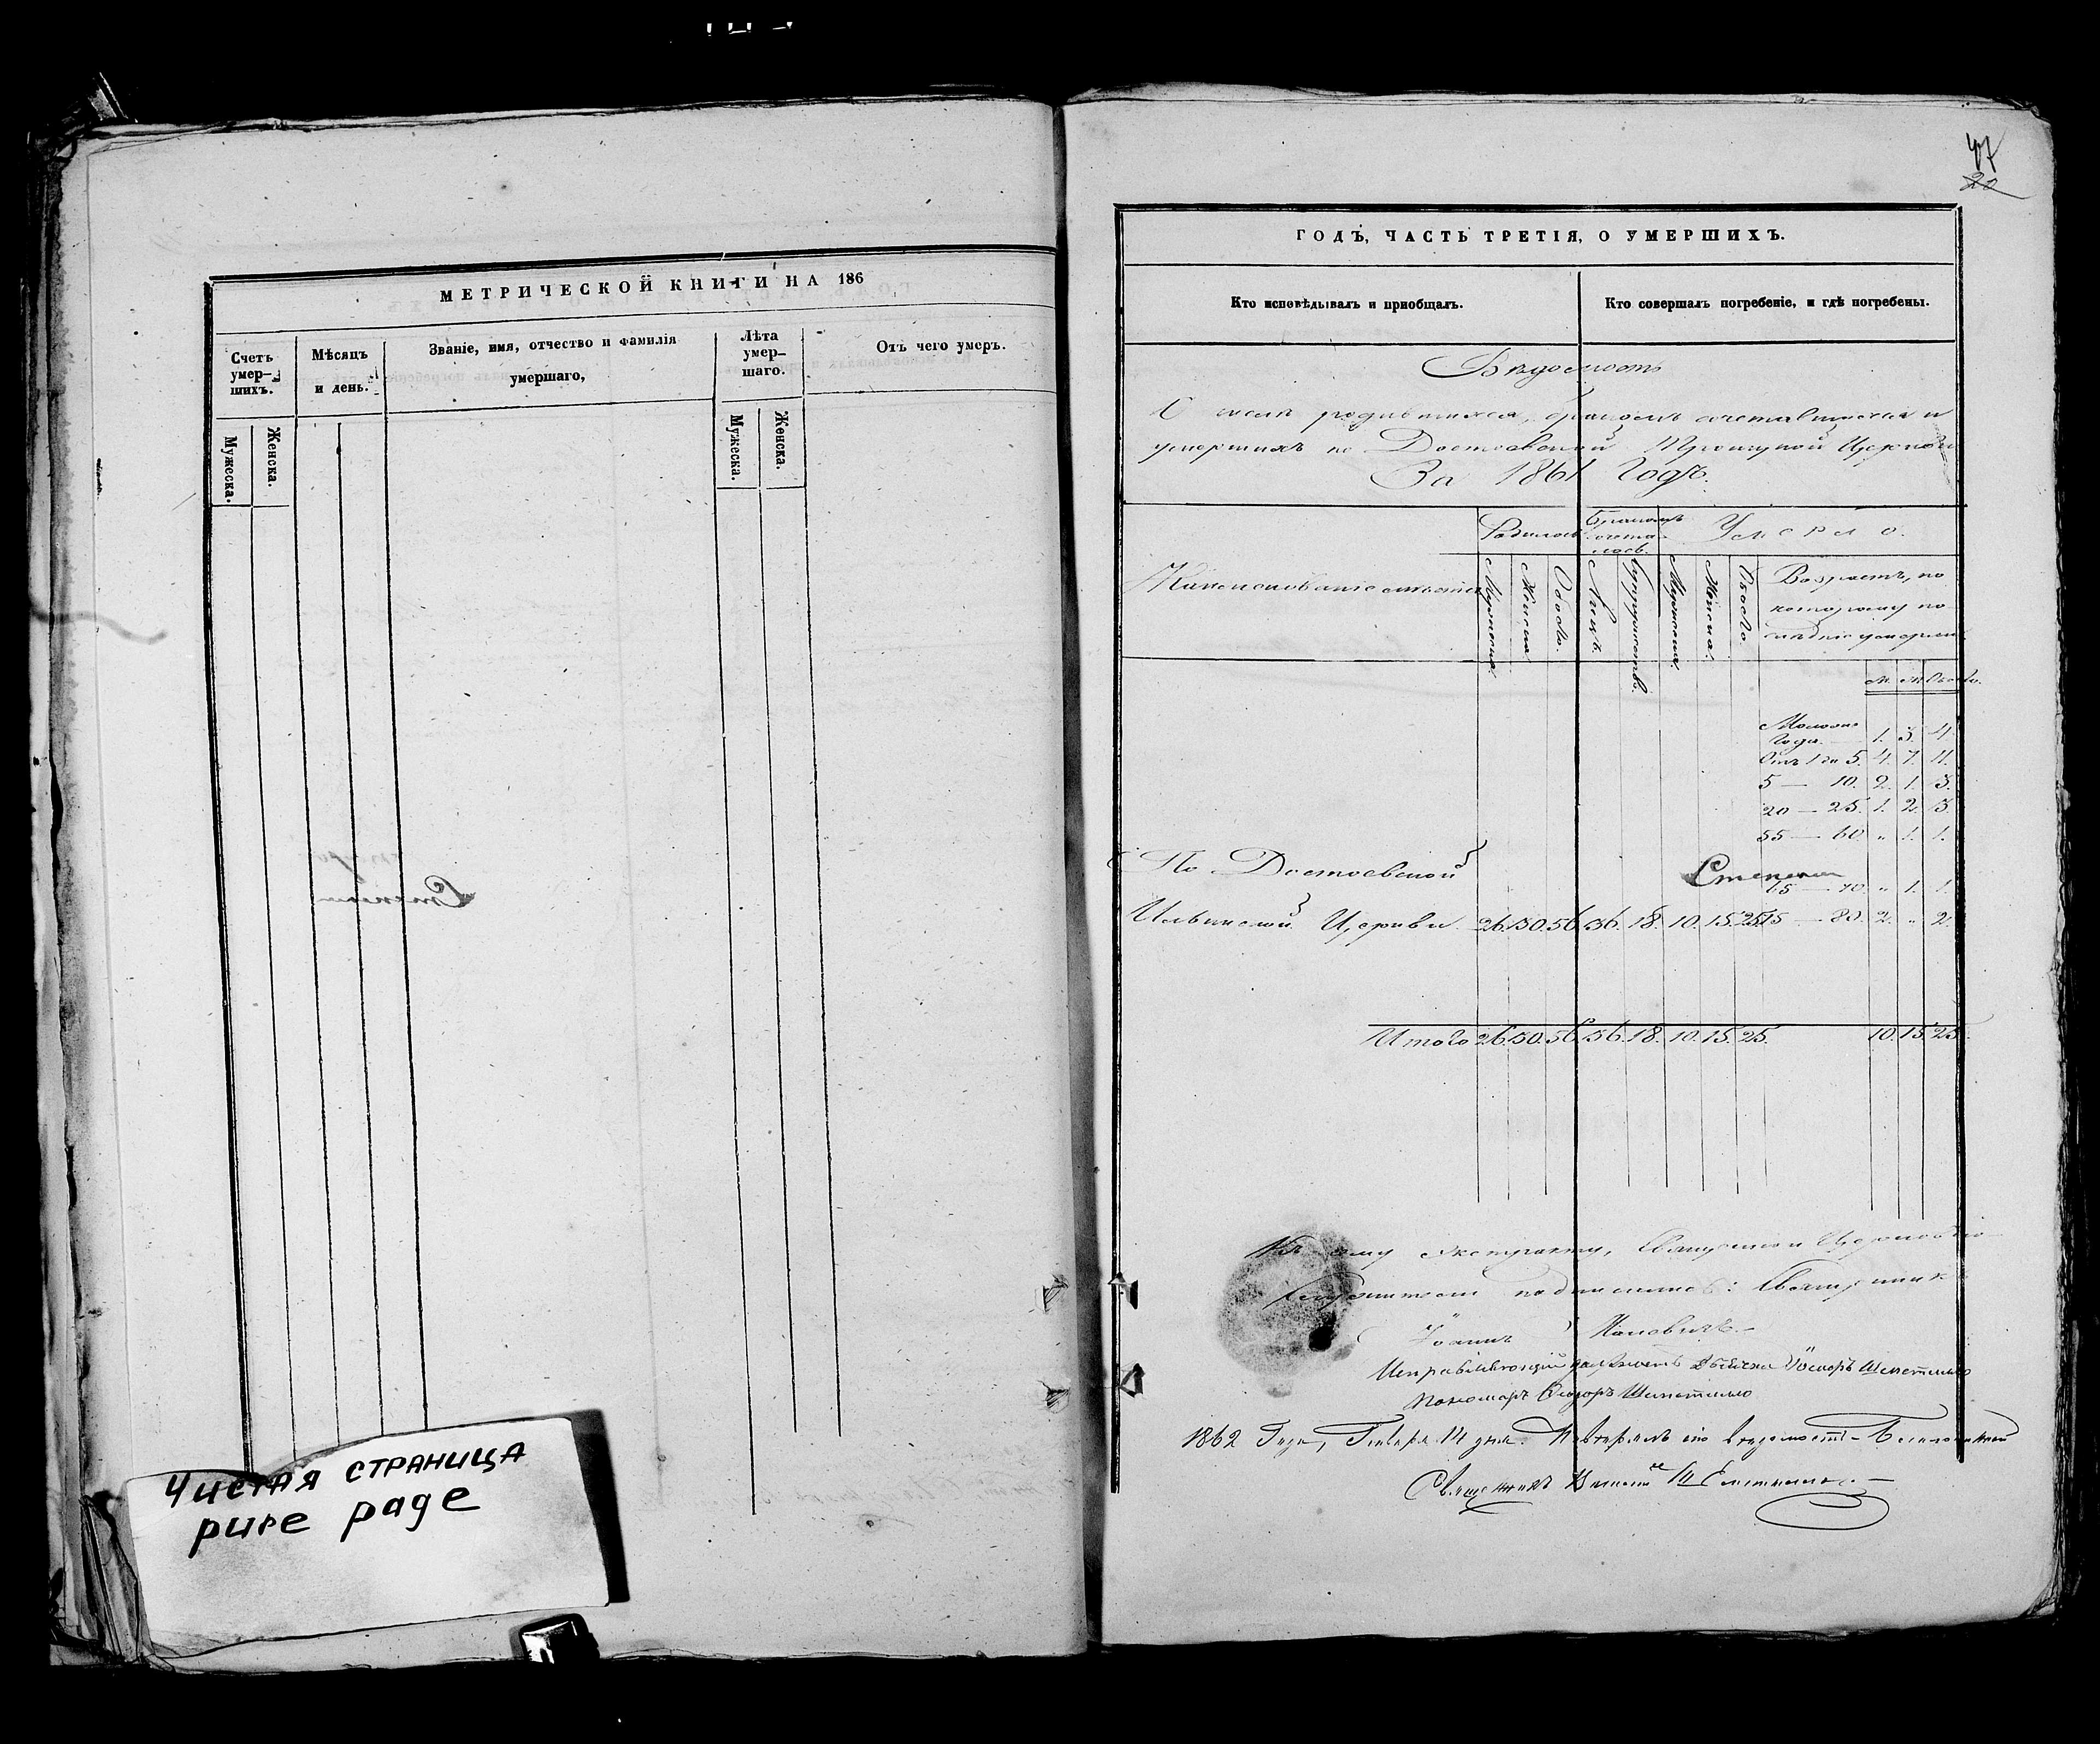 МЕТРИЧЕСКОЙ КНИГИ НА 186
Счетъ умер-шихъ.
Мѣсяцъ и день.
Званіе, имя, отчество и фамилія умершаго,
Лѣта умер-шаго.
Отъ чего умеръ.
Мужеска.
Женска.
Мужеска.
Женска.
Чистая страница
pure page
47
20
ГОДЪ, ЧАСТЬ ТРЕТІЯ, О УМЕРШИХЪ.
Кто исповѣдывалъ и пріобщалъ.
Кто совершалъ погребеніе, и гдѣ погребены.
Вѣдомость
О числѣ родившихся, бракомъ сочетавшихся и
умершихъ по Достоевской Приходской Церкви
За 1861 Годъ.
Родилось
Бракомъ сочета-лось.
Умерло.
Мужеска.
Женска
Обоего.
Лицъ.
Супружествъ.
Мужеска.
Женска.
Обоего.
Возрастъ, по
которому по-
М. Ж. Обоего.
года. 1. 3. 4.
Отъ 1 до 5. 4. 7. 11.
5 — 10. 2. 1. 3.
20 — 25. 1. 2. 3.
55 — 60. „ 1. 1.
По Достоевской
65 — 70. „ 1. 1.
Ильинской Церкви. 26. 30. 56. 36. 18. 10. 15. 25. 75 — 80. 2. „ 2.
Итого 26. 30. 56. 36. 18. 10. 15. 25. 10. 15. 25.
Къ сему экстракту, Священно и Церковно
служители подписались: Священникъ
Іоаннъ
должность
Пономарь Ѳеодоръ Шеметилло
1862 Года, Генваря 14 дня.
Священникъ